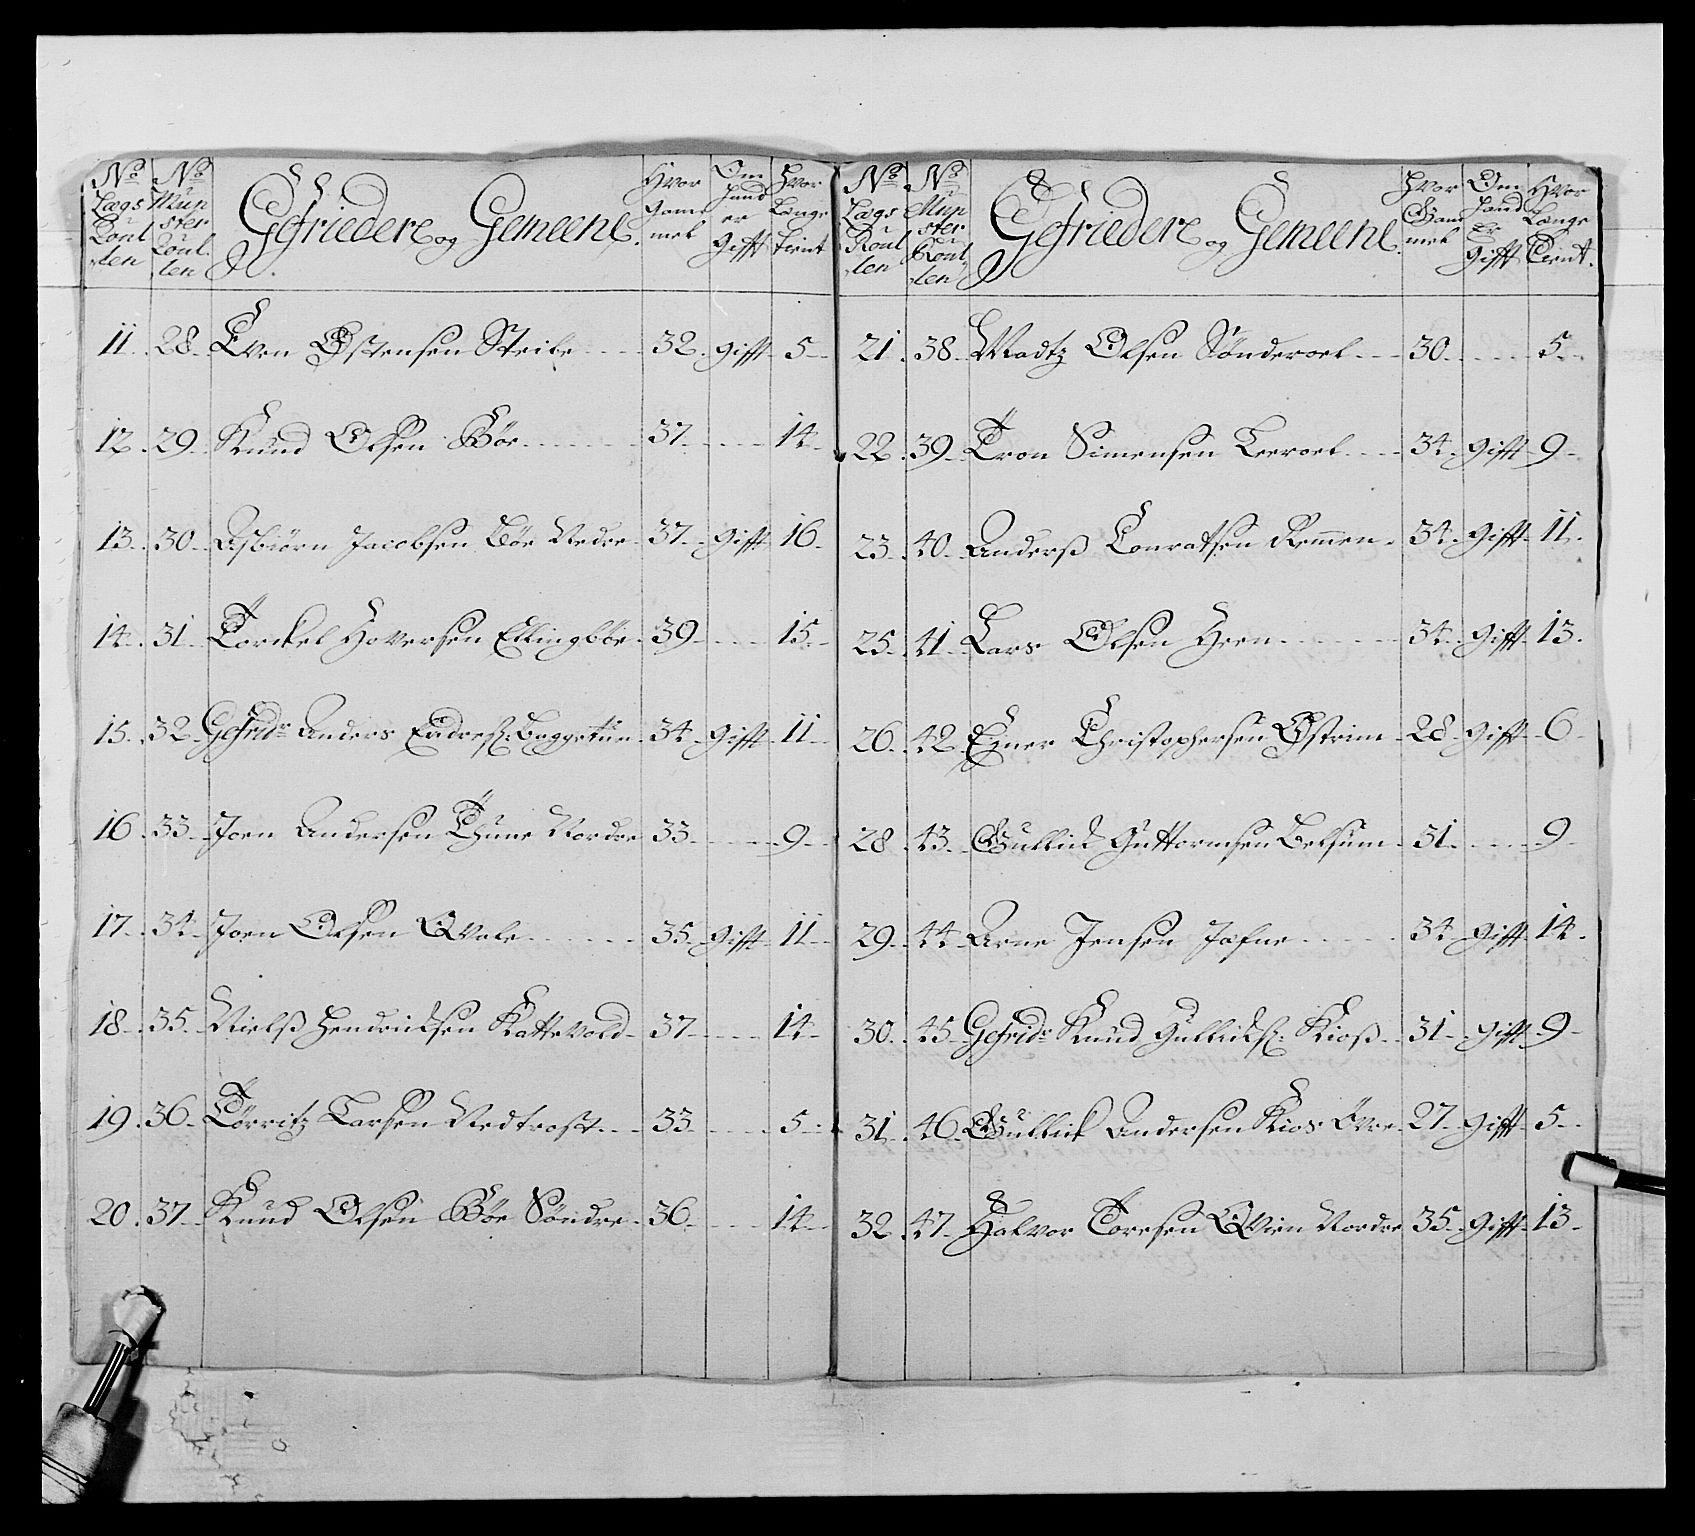 No Lægs Roullen No Munster Roullen Gefriedere og Gemeene. Hvor gammel Om hand er Gifft Hvor Længe tient
11. 28. Even Østensen Steile 32. gifft 5
12. 29. Knud Olsen Bøe 37. 14
13. 30. Asbiørn Jacobsen Bøe Nedre 37. gifft 16
14. 31. Torckel Hoversen Ellingbøe 39 15
15. 32. Gefridr Anders Endres: Baggetun 34 gifft 11
16. 33. Joen Andersen Thune Nordre 33 9
17. 34. Joen Olsen Qvale 35. gifft 11
18. 35. Nielß Hendricksen Kattevold 37 14
19. 36. Tørritz Larsen Nedtrost 33 5
20. 37. Knud Olsen Bøe Søndre 36. 14
No Lægs Roullen No Munster Roullen Gefriedere og Gemeene. Hvor Gammel Om hand er Gifft Hvor Længe Tient.
21. 38. Madtz Olsen Sønderoel 30. 5
22. 39. Tron Simensen Leeroel 34. gifft 9
23. 40. Anderß Conratsen Remmen 34. gifft 11.
25. 41. Lars Olsen Heen 34. gifft 13.
26. 42. Ejner Christophersen Østrim 28 gifft 6
28. 43. Gullick Guttormsen Belsum 31. 9
29. 44. Arne Jensen Jafne 34 gifft 14.
30. 45. Gefridr Knud Gullicks: Kioß 31 gifft 9
31. 46. Gullick Andersen Kios Øvre 27 gifft 5
32. 47. Halvor Toresen Qvien Nordre 35 gifft 13